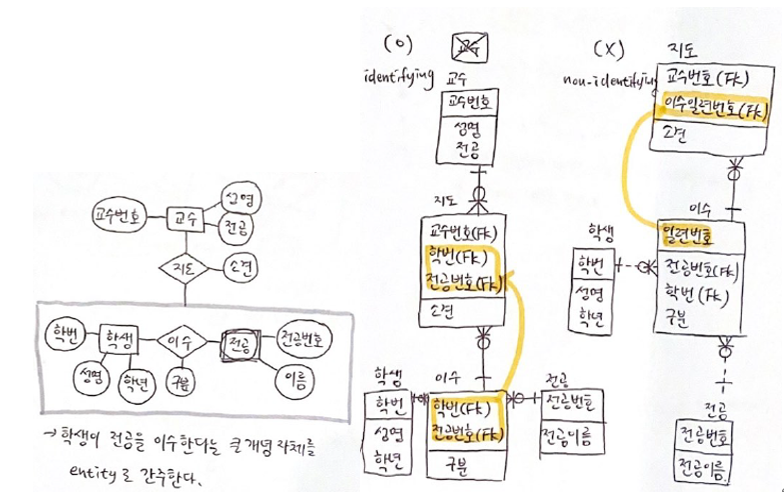 성명
교수번호
교수
전공
지도
소견
학번
학생
이수
전공
전공번호
성명
학년
구분
이름
→ 학생이 전공을 이수한다는 큰 개념 자체를
entity로 간주한다.
(O)
교수
identifying
교수
교수번호
성명
전공
지도
교수번호(Fk)
학번(Fk)
전공번호(Fk)
소견
학생
학번
성명
학년
이수
학번(Fk)
전공번호(Fk)
구분
전공
전공번호
전공이름
(X)
non-identifying
지도
교수번호(Fk)
이수일련번호(Fk)
소견
이수
일련번호
전공번호(Fk)
학번(Fk)
구분
학생
학번
성명
학년
전공
전공번호
전공이름